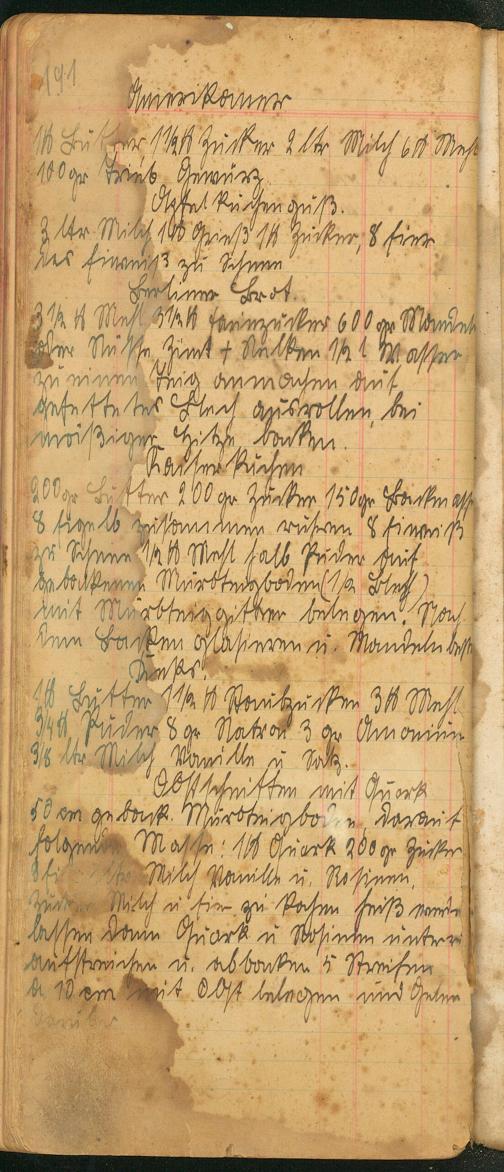 191
Amerikaner
1 ℔ Butter, 1½ ℔ Zucker 2 ltr Milch 6 ℔ Mehl
100 gr Trieb Gewürz.
Apfelkuchenguß.
3 ltr. Milch 1 ℔ Grieß 1 ℔ Zucker, 8 Eier
das Eiweiß zu Schnee
Berliner Brot.
3½ ℔ Mehl 3½ ℔ Farinzucker 600 gr Mandeln
oder Nüsse, Zimt + Nelken 1/2 l Wasser
zu einem Teig anmachen auf
gefettetes Blech ausrollen, bei
mäßiger Hitze backen.
Kaiserkuchen
200 gr Butter 200 gr Zucker 150 gr Backmasse
8 Eigelb zusammen rühren 8 Eiweiß
zu Schnee 1/2 ℔ Mehl halb Puder auf
gebackenen Mürbteigboden (1/2 Blech)
mit Mürbteiggitter belegen. Nach
dem Backen glasieren u. Mandeln
Keks.
1 ℔ Butter 1½ ℔ Staubzucker 3 ℔ Mehl
3/4 ℔ Puder 8 gr Natron 3 gr Amonium
3/8 ltr Milch Vanille u Salz.
Obstschnitten mit Quark
50 cm geback. Mürbteigboden, darauf
folgende Masse: 1 ℔ Quark 200 gr Zucker
Milch Vanille u. Rosinen.
Zucker Milch u Eier zu kochen heiß werden
lassen dann Quark u Rosinen unter
aufstreichen u. abbacken 5 Streifen
a 10 cm mit Obst belegen und Gelee
darüber